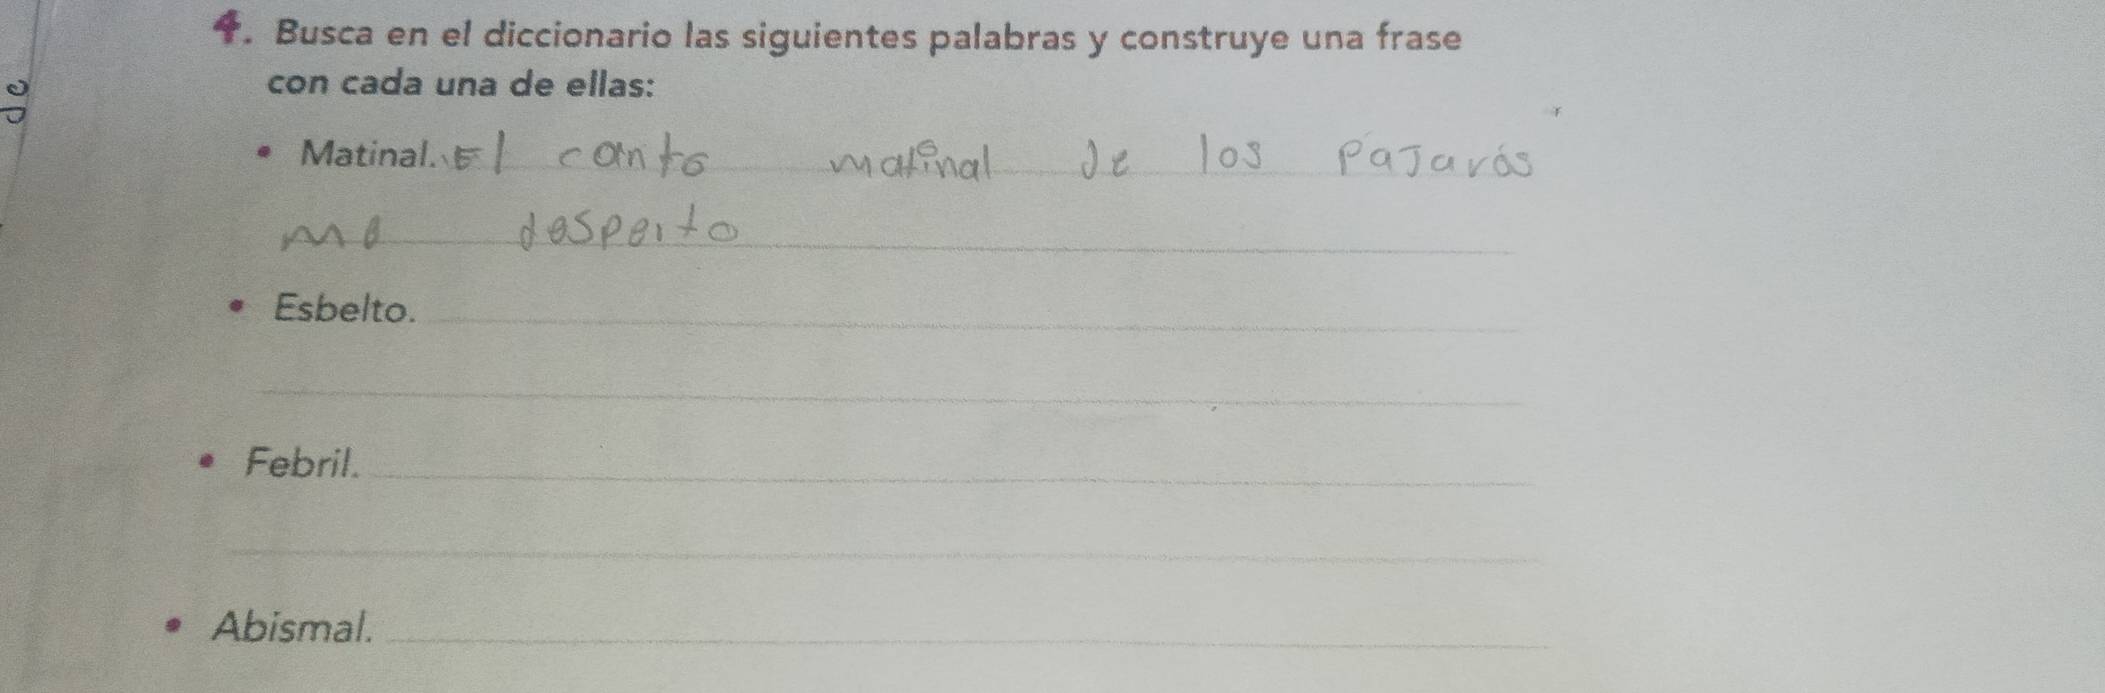 4. Busca en el diccionario las siguientes palabras y construye una frase
con cada una de ellas:
• Matinal. El canto matinal de los pajarós
me desperto
• Esbelto.
• Febril.
• Abismal.